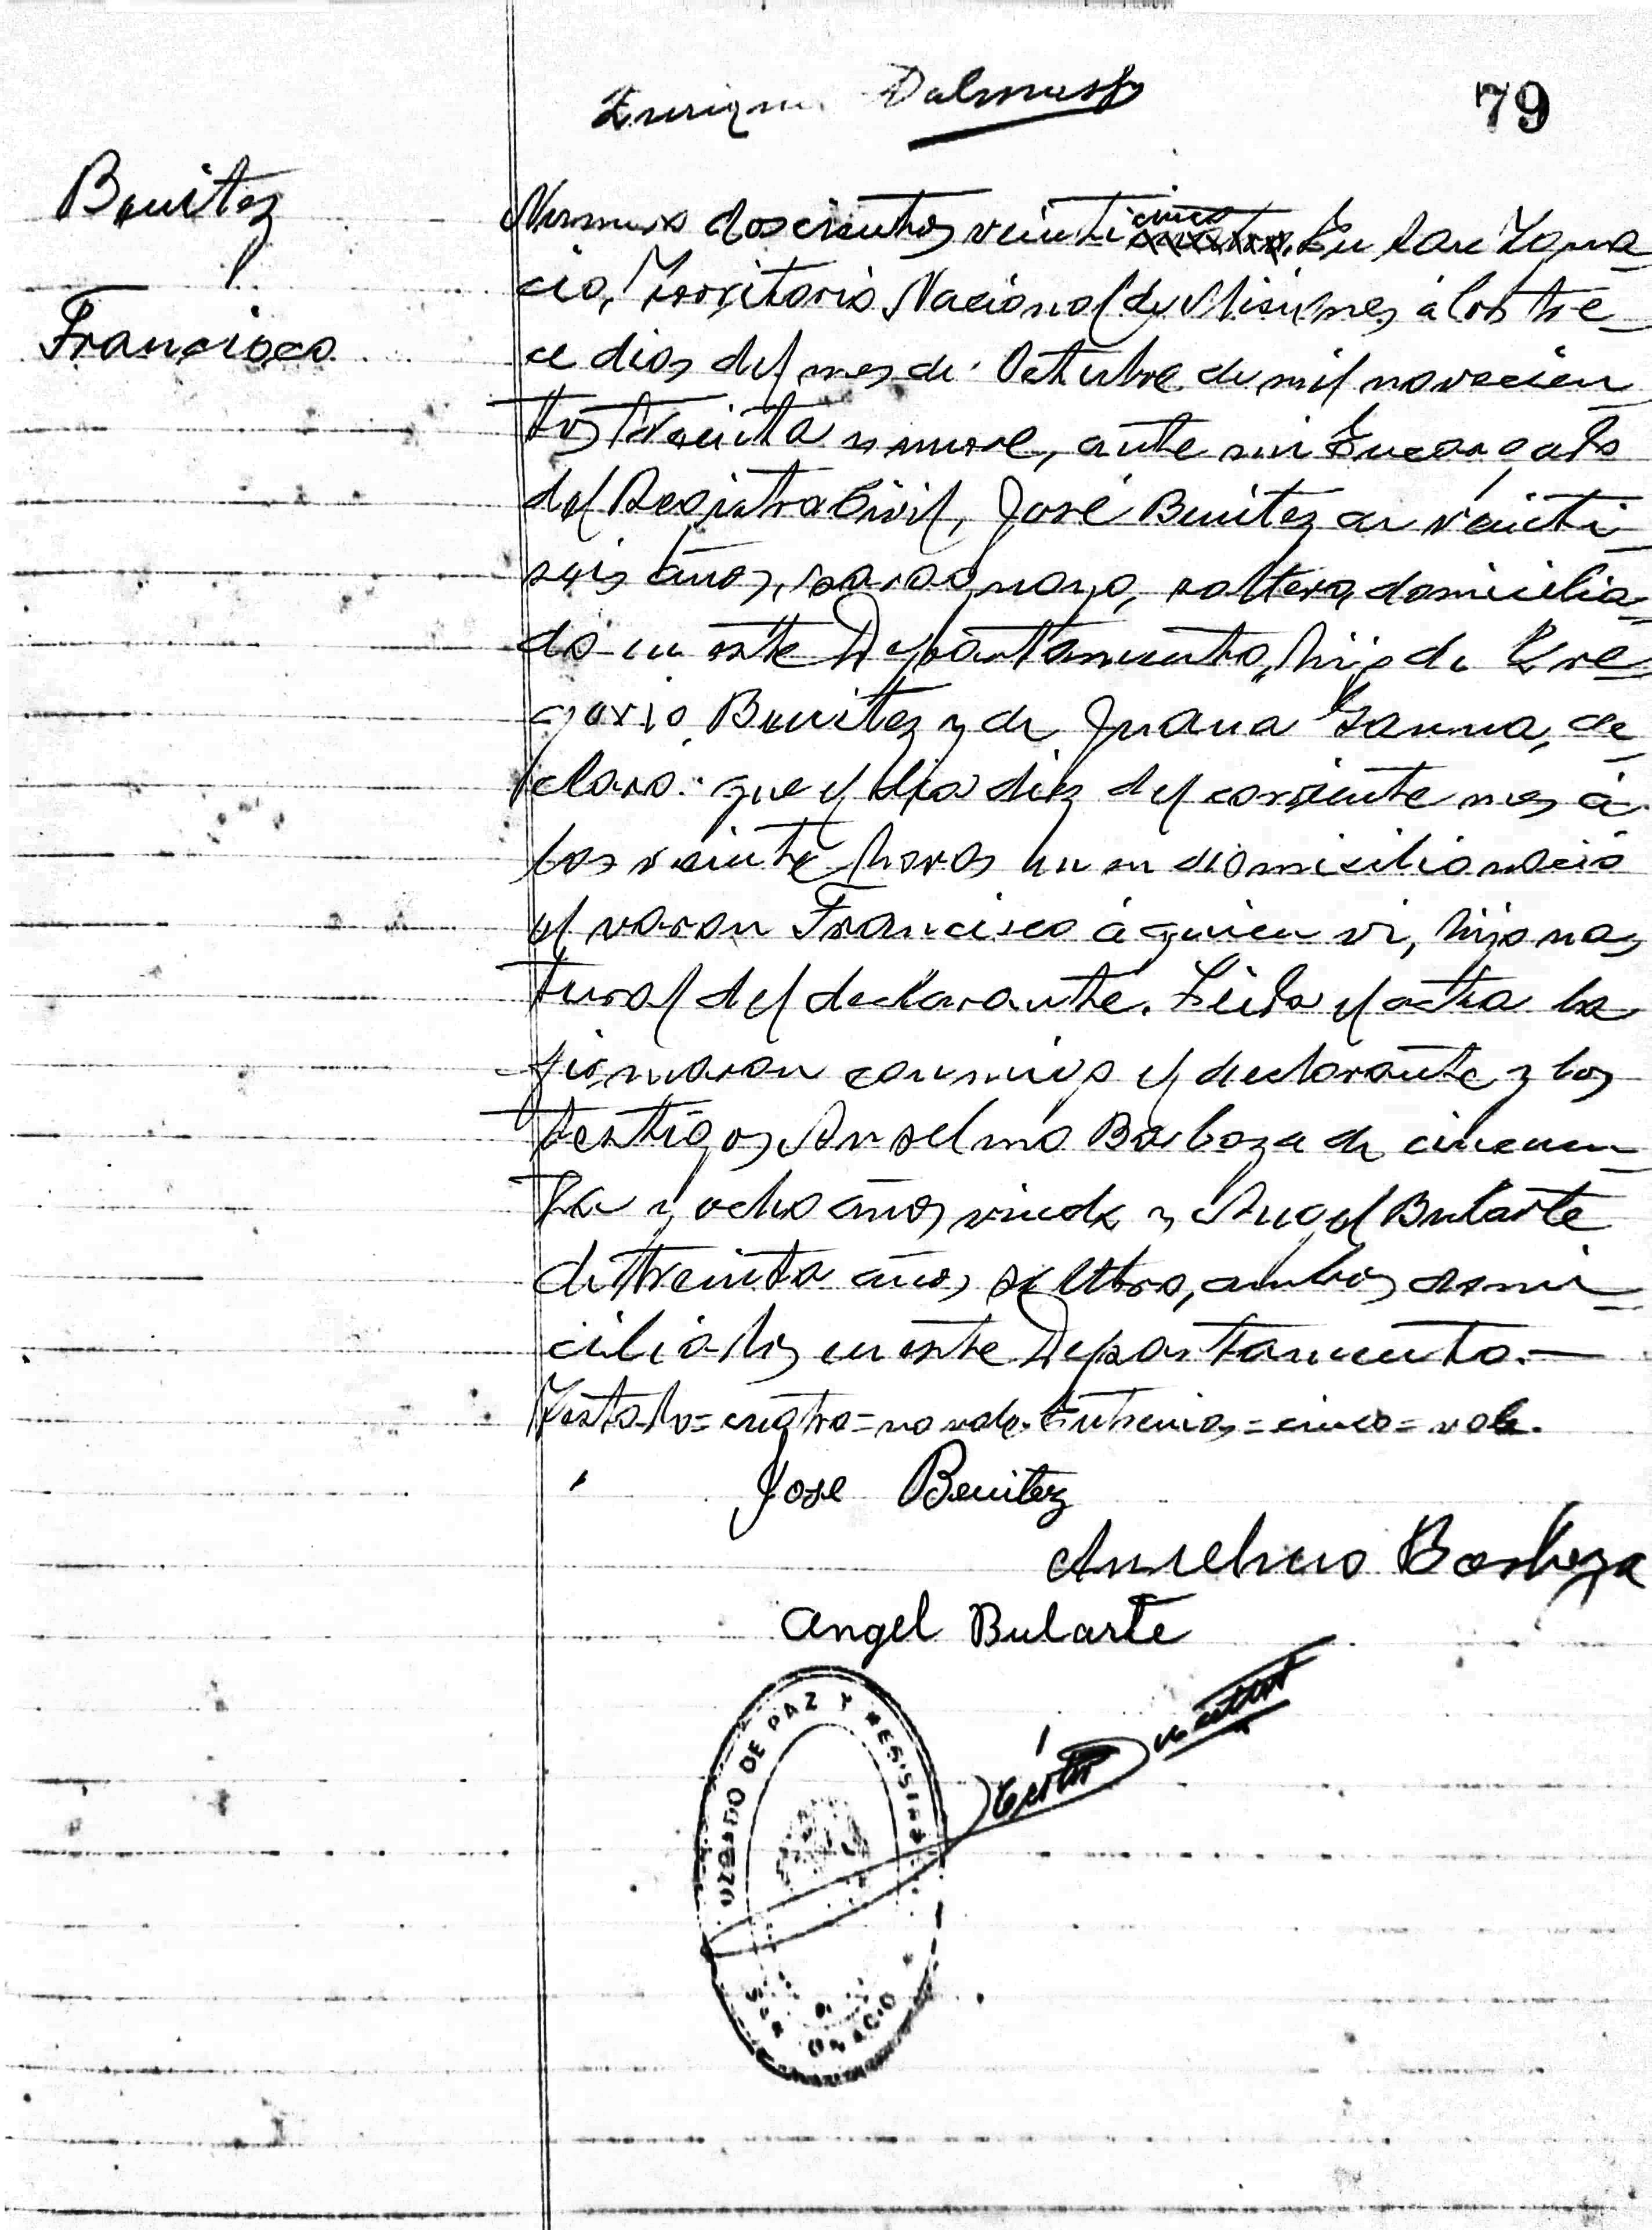 Enrique Dalmas
79
Benitez
Francisco
Numero doscientos veinticinco cuatro. En San Igna
cio, Territorio Nacional de Misiones, á los tre
ce dias del mes de Octubre de mil novecien
tos treinta y nueve, ante mi Encargado
del Registro Civil, José Benitez de veinti
seis años, paraguayo, soltero, domicilia
do en este Departamento, hijo de Gre
gorio Benitez y de Juana, de
claro: que el dia diez del corriente mes á
las veinte horas en su domicilio nació
el varon Francisco á quien vi, hijo na
tural del declarante. Leida el acta la
firmaron conmigo el declarante y los
testigos Anselmo Barboza de cincuen
ta y ocho años, viudo y Angel Bularte
de treinta años, soltero, ambos domi
ciliados en este Departamento.—
Testado=cuatro=no vale. Entrelineas=cinco=vale.
Jose Benitez
Anselmo Barboza
Angel Bularte
JUZGADO DE PAZ Y REGISTRO
SAN IGNACIO